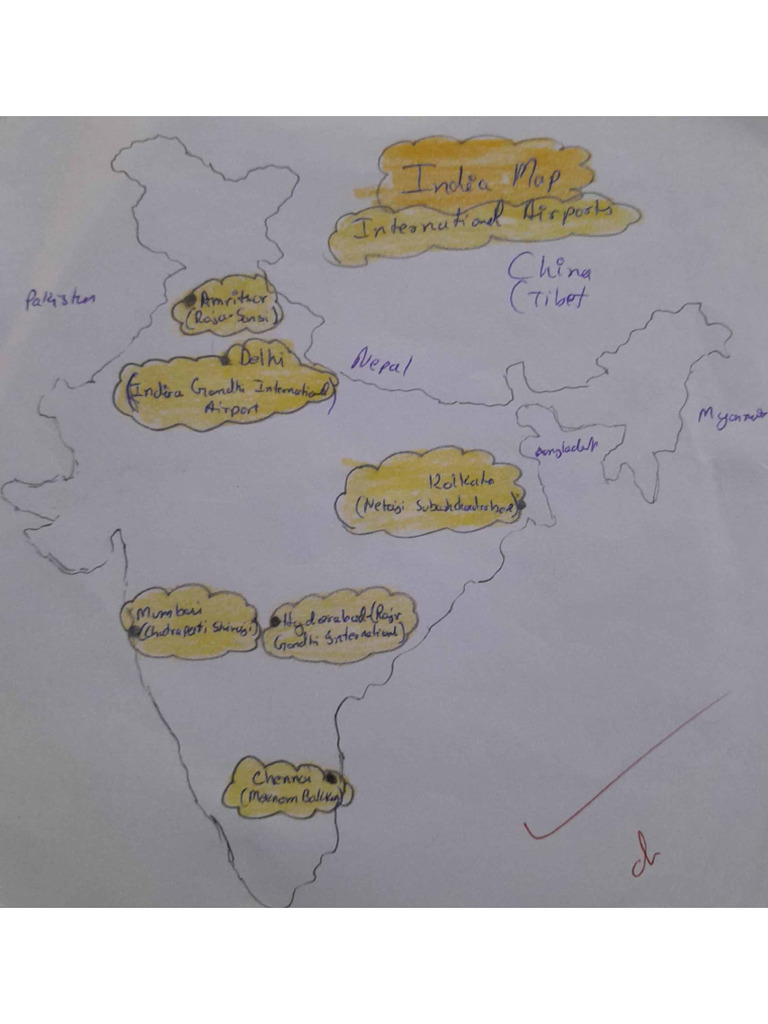 India Map
International Airports
China
(Tibet
Pakistan
Amritsar
(Raja-Sansi)
Delhi
(Indira Gandhi International)
Airport
Nepal
Myanmar
Bangladesh
Kolkata
(Netaji Subashchandrabose)
Mumbai
(Chatrapati Shivaji)
Hyderabad-(Rajiv
Gandhi International)
Chennai